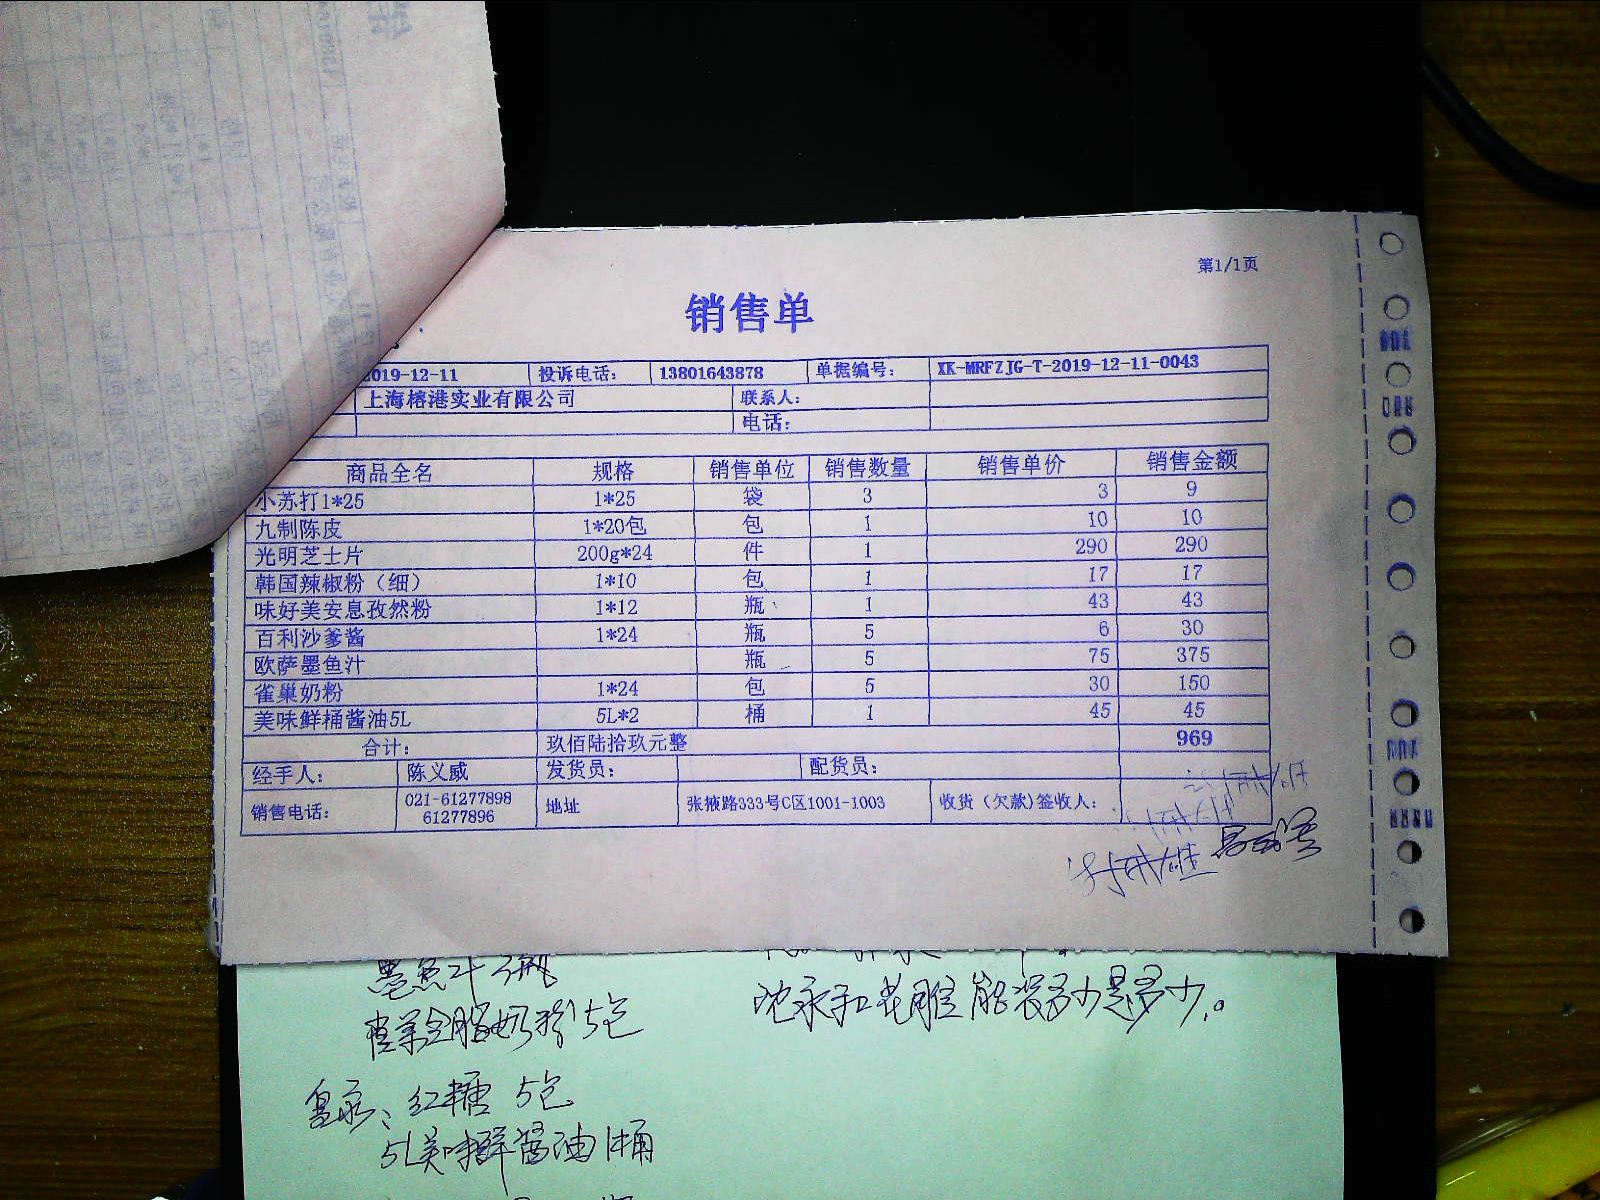 第1/1页
销售单
2019-12-11 投诉电话: 13801643878 单据编号: XK-MRFZJG-T-2019-12-11-0043
上海榕港实业有限公司 联系人:
电话:
商品全名 规格 销售单位 销售数量 销售单价 销售金额
小苏打1*25 1*25 袋 3 3 9
九制陈皮 1*20包 包 1 10 10
光明芝士片 200g*24 件 1 290 290
韩国辣椒粉（细） 1*10 包 1 17 17
味好美安息孜然粉 1*12 瓶 1 43 43
百利沙爹酱 1*24 瓶 5 6 30
欧萨墨鱼汁 瓶 5 75 375
雀巢奶粉 1*24 包 5 30 150
美味鲜桶酱油5L 5L*2 桶 1 45 45
合计: 玖佰陆拾玖元整 969
经手人: 陈义威 发货员: 配货员:
销售电话: 021-61277898 61277896 地址 张掖路333号C区1001-1003 收货（欠款)签收人:
墨鱼汁 5瓶
雀巢全脂奶粉 5包
沈永和花雕能装多少是多少。
红糖 5包
5L美味鲜酱油1桶